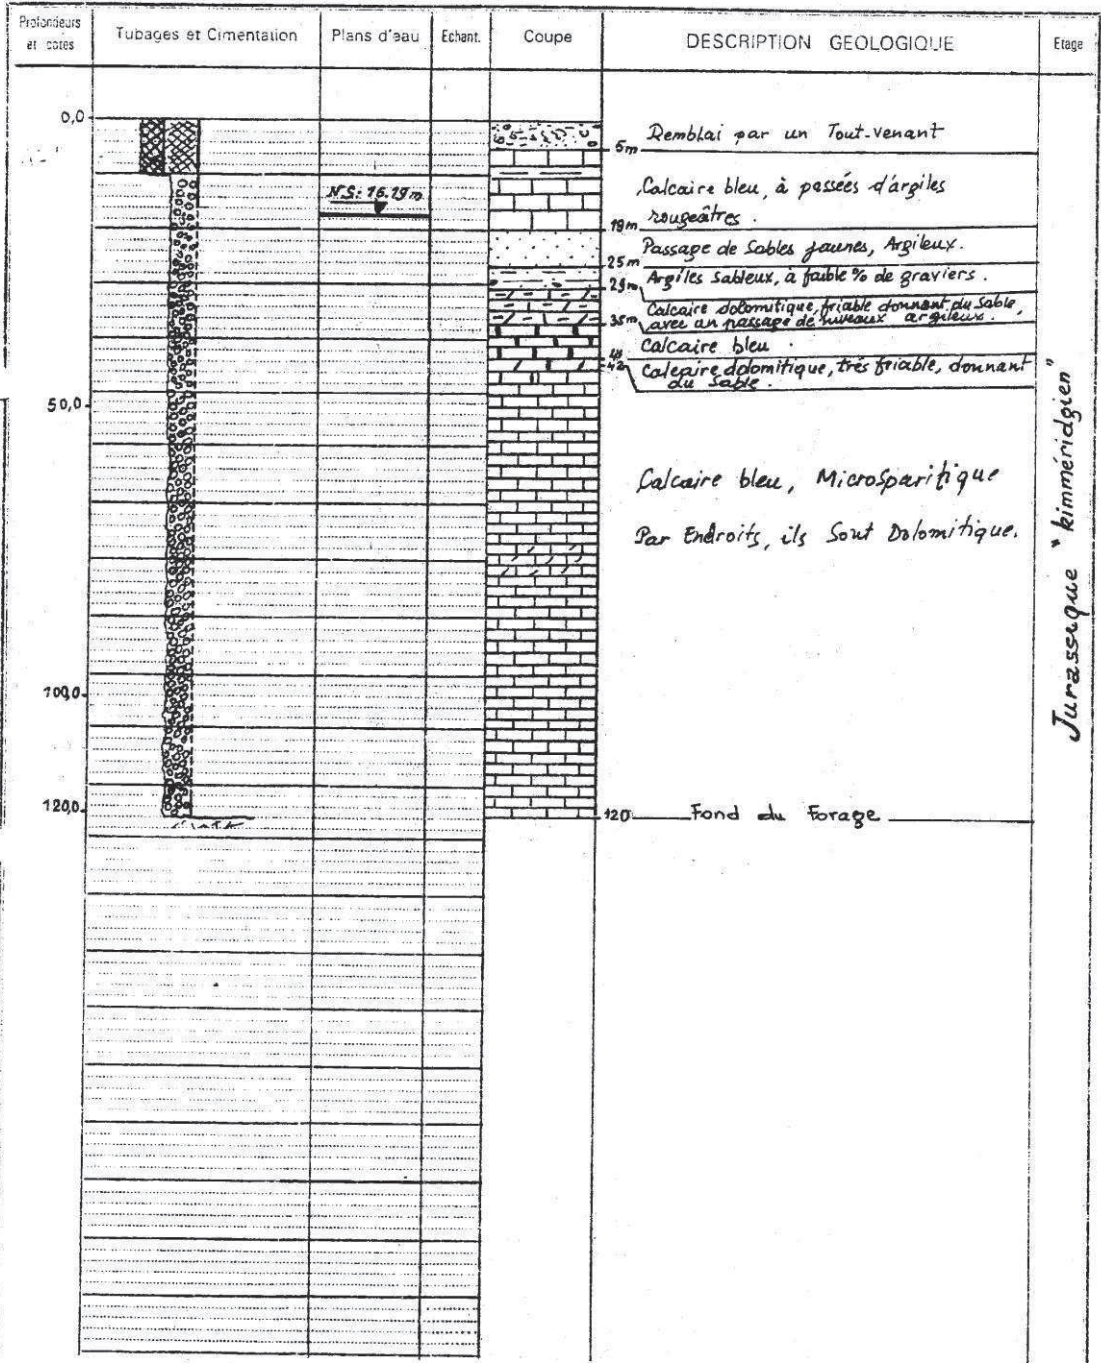 Profondeurs
et cotes
Tubages et Cimentation
Plans d'eau
Echant.
Coupe
DESCRIPTION GEOLOGIQUE
Etage
0,0
Remblai par un Tout-venant
5m
N.S: 16.19m
Calcaire bleu, à passées d'argiles
rougeâtres.
19m
Passage de Sables jaunes, Argileux.
25m
Argiles Sableux, à faible % de graviers.
29m
Calcaire dolomitique, friable donnant du Sable,
avec un passage de niveaux argileux.
35m
Calcaire bleu.
41
42
Calcaire dolomitique, très friable, donnant
du Sable.
50,0
Calcaire bleu, Microsparitique
Par Endroits, ils Sont Dolomitique.
Jurassique "kimméridgien"
100,0
120,0
120
Fond du Forage